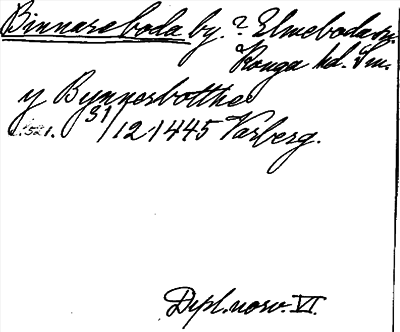 Binnareboda by. ? Elmeboda sn.
Konga hd. Sm.
y Bynnerbotthe
31/12 1445 Varberg.
Dipl. norv. VI.